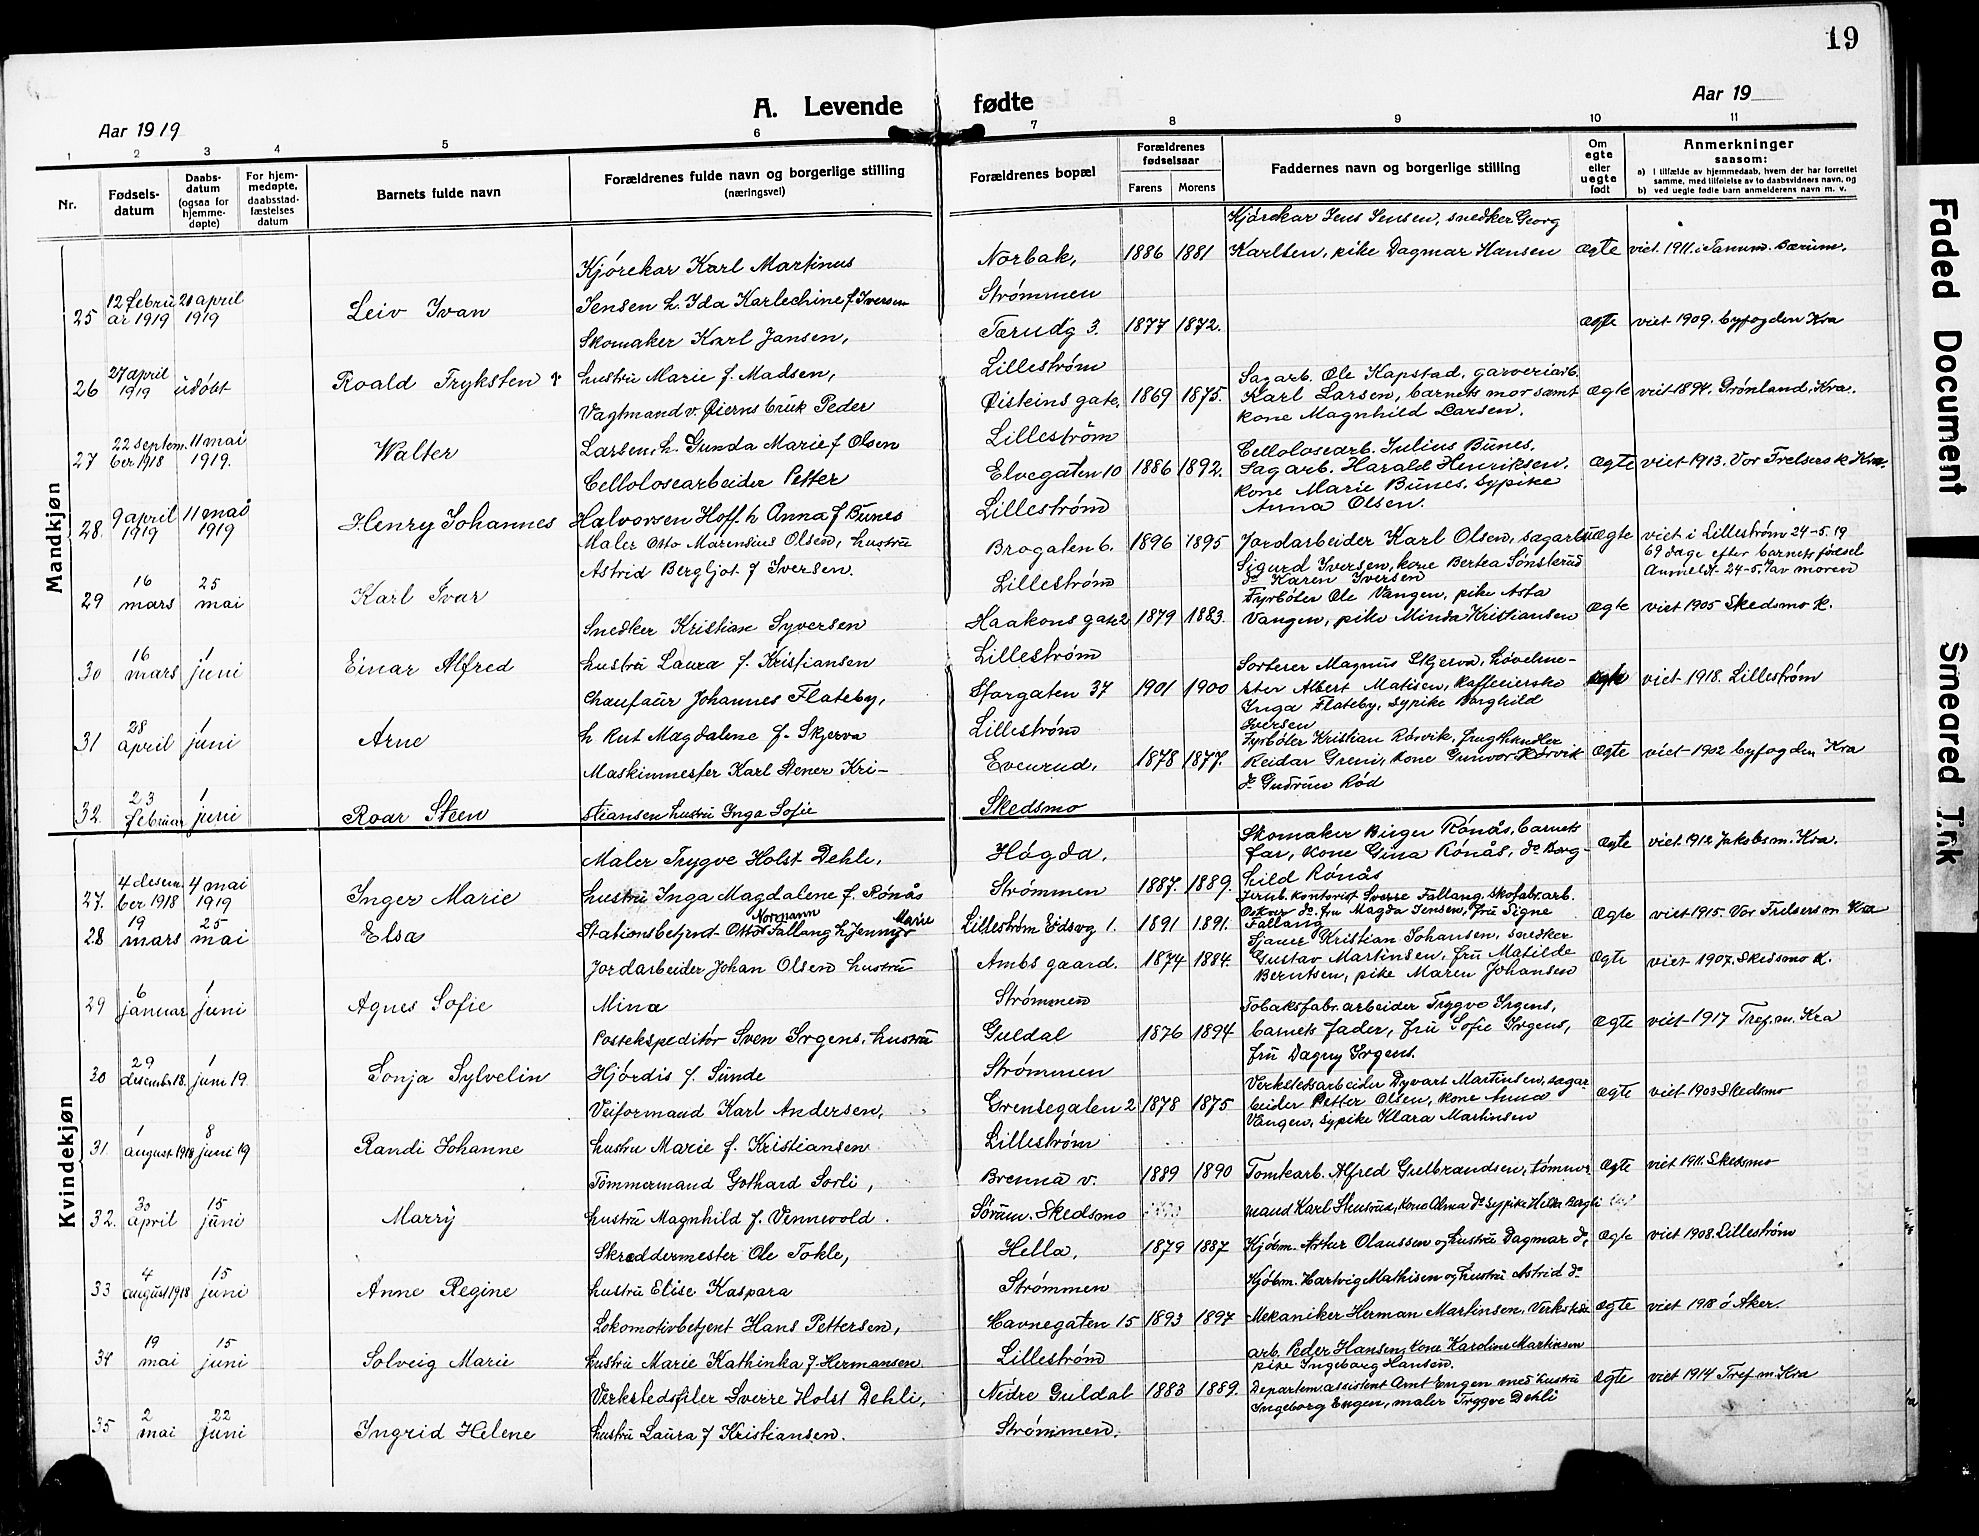 19
A. Levende fødte
Aar 1919
Aar 19
1 2 3 4 5 6 7 8 9 10 11
Nr.
Fødsels-
datum
Daabs-
datum
(ogsaa for
hjemme-
døpte)
For hjem-
medøpte,
daabsstad-
fæstelses
datum
Barnets fulde navn
Forældrenes fulde navn og borgerlige stilling
(næringsvei)
Forældrenes bopæl
Forældrenes
fødselsaar
Farens Morens
Faddernes navn og borgerlige stilling
Om
egte
eller
uegte
født
Anmerkninger
saasom:
a) I tilfælde av hjemmedaab, hvem der har forrettet
samme, med tilføielse av to daabsvidners navn, og
b) ved uegte født barn anmelderens navn m. v.
Mandkjøn
25 12 febru 21 april
ar 1919 1919
Leiv Ivan
Kjørekar Karl Martinus
Jensen h. Ida Karlechine f Iversen
Norbak,
Strømmen
1886 1881
Kjørekar Jens Jensen, snedker Georg
Karlsen, pike Dagmar Hansen
ægte
viet. 1911. i Tanum. Bærum.
26 27 april
1919 udøbt
Roald Tryksten †
Skomaker Karl Jansen,
hustru Marie f. Madsen,
Tærudg 3.
Lillestrøm
1877 1872.
ægte
viet 1909. byfogden Kra
27 22 septem. 11 mai
ber 1918 1919.
Walter
Vagtmand v. Øierns bruk Peder
Larsen, h. Gunda Marie f Olsen
Øisteins gate.
Lillestrøm
1869 1875.
Sagarb. Ole Kapstad, garveriarb.
Karl Larsen, barnets mor samt
kone Magnhild Larsen.
ægte
viet 1894. Grønland. Kra.
28. 9 april 11 mai
1919 1919
Henry Johannes
Cellolosearbeider Petter
Halvorsen Hoff. h Anna f Bunes
Elvegaten 10
Lillestrøm
1886 1892.
Cellolosearb. Julius Bunes.
Sagarb. Harald Henriksen.
kone Marie Bunes, sypike
Anna Olsen.
ægte
viet 1913. Vor Frelsers k Kra.
29 16 25
mars mai
Karl Ivar
Maler Otto Marensius Olsen, hustru
Astrid Bergljot f Iversen.
Brogaten 6.
Lillestrøm
1896 1895
Jordarbeider Karl Olsen, sagarb.
Sigurd Iversen, kone Bertea Sønsterud
do Karen Iversen
uægte
viet i Lillestrøm 24-5.19
69 dage efter barnets fødsel
Anmeldt 24-5. av moren
30 16 1
mars juni
Einar Alfred
Snedker Kristian Syversen
hustru Laura f. Kristiansen
Haakons gate 2
Lillestrøm
1879 1883.
Fyrbøter Ole Vangen, pike Asta
Vangen, pike Minda Kristiansen
ægte
viet 1905 Skedsmo k.
31 28 1
april juni
Arne
Chaufaur Johannes Flateby,
h Rut Magdalene f. Skjerva
Storgaten 37
Lillestrøm
1901 1900
Sorterer Magnus Skjerva, høvelme-
ster Albert Matisen, kaffeeierske
Inga Flateby, sypike Borghild
Iversen
ægte
viet 1918. Lillestrøm
32. 23 1
februar juni
Roar Steen
Maskinmester Karl Stener Kri-
stiansen hustru Inga Sofie
Evenrud,
Skedsmo
1878 1877.
Fyrbøter Kristian Rørvik, frugthandler
Reidar Greni, kone Gunvor Rørvik
do Gudrun Rød
ægte
viet 1902 byfogden Kra
Kvindekjøn
27. 4 desem 4 mai
ber 1918 1919
Inger Marie
Maler Trygve Holst Dehli,
hustru Inga Magdalene f. Rønås
Høgda,
Strømmen
1887. 1889.
Skomaker Birger Rønås, barnets
far, kone Gina Rønås, do Borg-
hild Rønås
ægte
viet 1912 Jakobs m. Kra.
28 19 25
mars mai
Elsa
Stationsbetjent Otto Normann Fallang h Jenny Marie
Lillestrøm Eidsvg 1.
1891 1891.
Jernb. kontorist Sverre Fallang, skofabr.arb.
Oskar do. fru Magda Jensen, fru Signe
Fallang
ægte
viet 1915. Vor Frelsers m Kra
29 6 1
januar juni
Agnes Sofie
Jordarbeider Johan Olsen hustru
Mina
Ambs gaard.
Strømmen
1874 1884.
Sjauer Kristian Johansen, snedker
Gustav Martinsen, fru Matilde
Berntsen, pike Maren Johansen
ægte
viet 1907. Skedsmo k.
30 29 1
desember 18. juni 19
Sonja Sylvelin
Postekspeditør Sven Irgens, hustru
Hjørdis f. Sunde
Guldal
Strømmen
1876 1894
Tobaksfabr.arbeider Trygve Irgens,
barnets fader, fru Sofie Irgens,
fru Dagny Irgens.
ægte
viet 1917 Tref. m. Kra
31. 1 8
august 1918 juni 19
Randi Johanne
Veiformand Karl Andersen,
hustru Marie f. Kristiansen
Grensegaten 2
Lillestrøm
1878 1875
Verkstedsarbeider Dyvart Martinsen, sagar
beider Petter Olsen, kone Anna
Vangen, sypike Klara Martinsen
ægte
viet 1903 Skedsmo
32. 30 15
april juni
Marry
Tømmermand Gothard Sorli,
hustru Magnhild f. Vennevold.
Brenna v.
Sørum. Skedsmo
1889 1890
Tomtearb. Alfred Gulbrandsen, tømmer
mand Karl Stensrud, kone Olma do sypike Helka Bergli
ægte
viet 1911. Skedsmo
33 4 15
august 1918 juni
Anne Regine
Skreddermester Ole Tokle,
hustru Elise Kaspara
Hella,
Strømmen
1879 1887
Kjøbm. Artur Olaussen og hustru Dagmar do,
Kjøbm. Hartvig Mathisen og hustru Astrid do
ægte
viet 1908. Lillestrøm
34 19 15
mai juni
Solveig Marie
Lokomotivbetjent Hans Pettersen,
hustru Marie Kathinka f. Hermansen.
Havnegaten 15
Lillestrøm
1893 1897
Mekaniker Herman Martinsen, Verksteds
arb. Peder Hansen, kone Karoline Martinsen
pike Ingeborg Hansen.
ægte
viet 1918 ø Aker.
35 2 22
mai juni
Ingrid Helene
Verkstedsfiler Sverre Holst Dehli,
hustru Laura f Kristiansen.
Nedre Guldal
Strømmen.
1883 1889.
Departem.assistent Amt Engen med hustru
Ingeborg Engen, maler Trygve Dehli
ægte
viet 1914 Tref. m. Kra
Faded Document
Smeared Trik